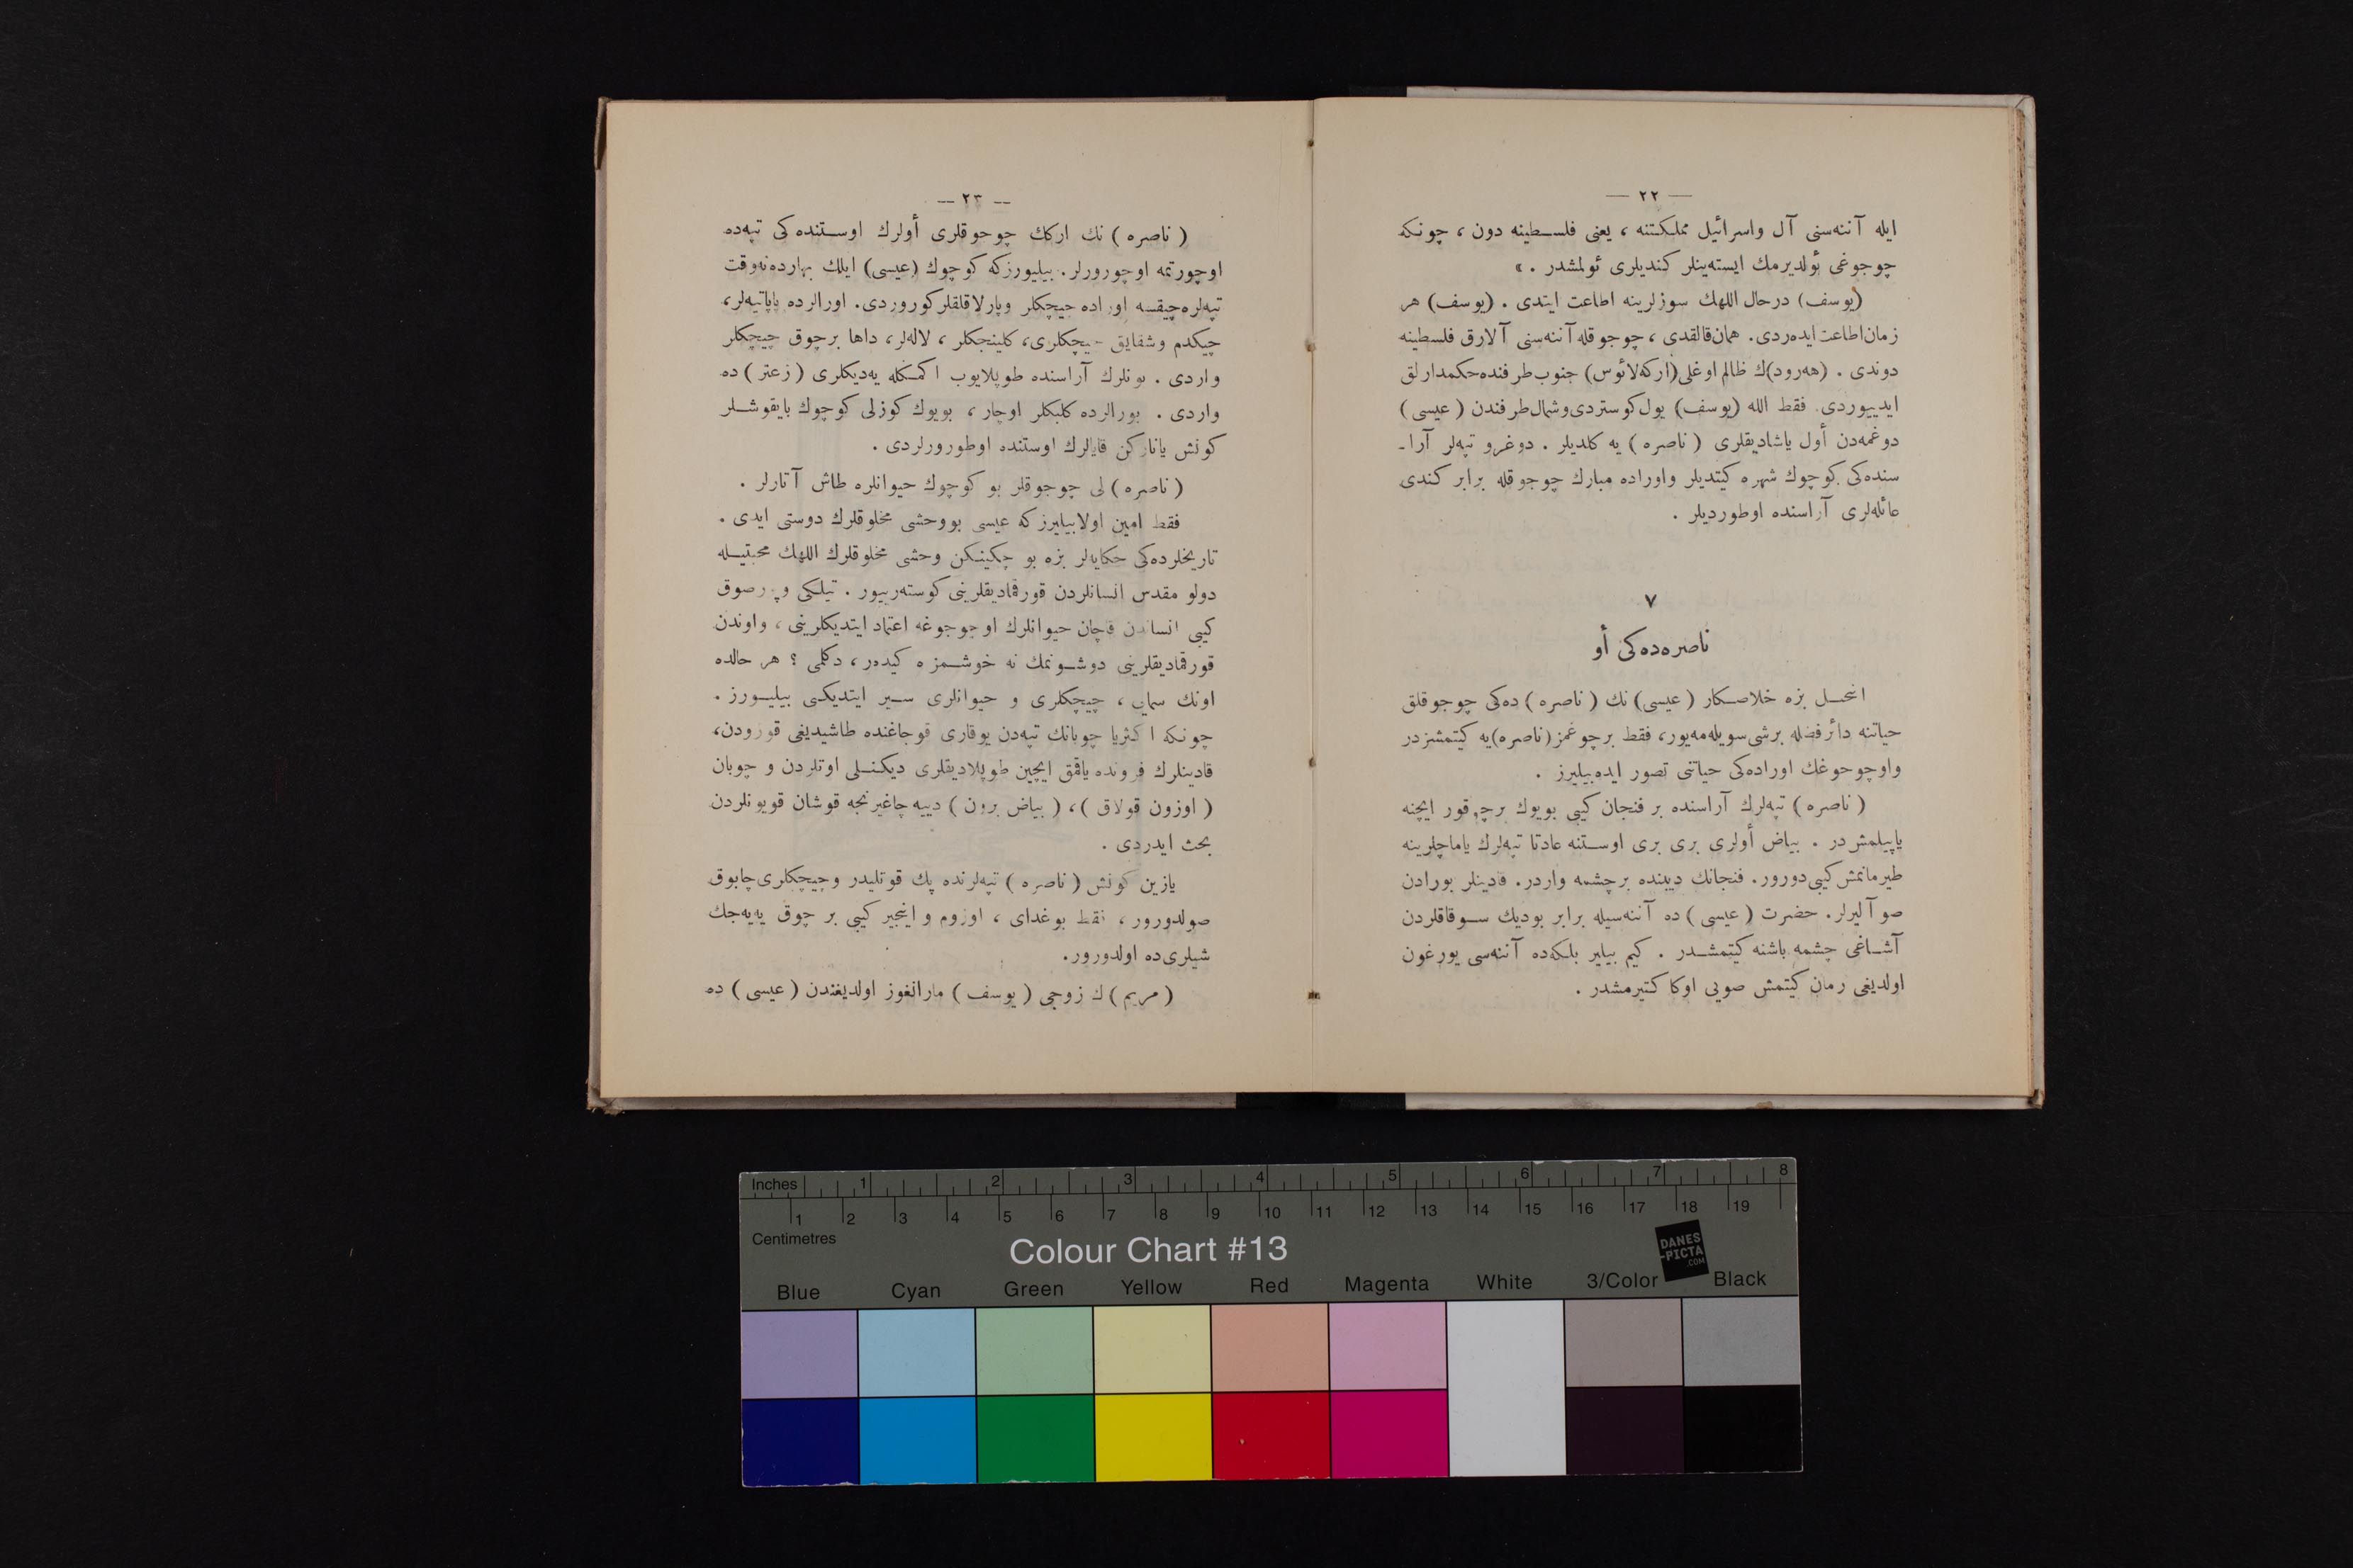 — ٢٢ —
ايله آننه‌سنى آل واسرائيل مملكتنه ، يعنى فلسـطينه دون ، چونكه
چوجوغى ئولديرمك ايسته‌ينلر كنديلرى ئولمشدر . »
(يوسف) درحال اللهك سوزلرينه اطاعت ايتدى . (يوسف) هر
زمان اطاعت ايده‌ردى. همان قالقدى ، چوجوقله آننه‌سنى آلارق فلسطينه
دوندى . (هه‌رود)ك ظالم اوغلى (اركه‌لائوس) جنوب طرفنده حكمدارلق
ايدييوردى. فقط الله (يوسف) يول كوستردى وشمال طرفندن (عيسى)
دوغمه‌دن أول ياشاديقلرى (ناصره) يه كلديلر . دوغرو تپه‌لر آرا-
سنده‌كى كوچوك شهره كيتديلر واوراده مبارك چوجوقله برابر كندى
عائله‌لرى آراسنده اوطورديلر .
٧
ناصره‌ده‌كى أو
انجـيل بزه خلاصـكار (عيسى) نك (ناصره) ده‌كى چوجوقلق
حياتنه دائر فضله برشى سويله‌مه‌يور، فقط بر چوغمز (ناصره) يه كيتمشزدر
واوچوجوغك اوراده‌كى حياتنى تصور ايده‌بيليرز .
(ناصره) تپه‌لرك آراسنده بر فنجان كيبى بويوك برچوقور ايچنه
ياپيلمش در . بياض أولرى برى برى اوسـتنه عادتا تپه‌لرك ياماجلرينه
طيرمانمش كيبى دورور. فنجانك ديبنده بر چشمه واردر. قادينلر بورادن
صو آليرلر. حضرت (عيسى) ده آننه‌سيله برابر بوديك سـوقاقلردن
آشـاغى چشمه باشنه كيتمشـدر . كيم بيلير بلكه‌ده آننه‌سى يورغون
اولديغى زمان كيتمش صويى اوكا كتيرمشدر .
— ٢٣ —
(ناصره) نك اركك چوجوقلرى أولرك اوسـتنده‌كى تپه‌ده
اوچورتمه اوچورورلر. بيليورزكه كوچوك (عيسى) ايلك بهارده نه‌وقت
تپه‌لره چيقسه اوراده چيچكلر وپارلاقلقلر كوروردى. اورالرده پاپاتيه‌لر،
چيكدم وشقايق چيچكلرى، كلينجكلر ، لاله‌لر، داها برچوق چيچكلر
واردى . بونلرك آراسنده طوپلايوب اكمـكله يه‌ديكلرى (زعتر) ده
واردى . بورالرده كلبكلر اوچار ، بويوك كوزلى كوچوك بايقوشـلر
كونش يانارکن قايالرك اوستنده اوطورورلردى .
(ناصره) لى چوجوقلر بو كوچوك حيوانلره طاش آتارلر .
فقط امين اولابيليرزكه عيسى بووحشى مخلوقلرك دوستى ايدى .
تاريخلرده‌كى حكايه‌لر بزه بو چكينـكن وحشى مخلوقلرك اللهك محبتيـله
دولو مقدس انسانلردن قورقماديقلرينى كوسته‌رييور . تيلـكى وپورصوق
كيبى انساندن قاچان حيوانلرك اوچوجوغه اعتماد ايتديكلرينى ، واوندن
قورقماديقلرينى دوشـونمك نه خوشـمزه كيده‌ر، دكلمى ؟ هر حالده
اونك سمايى ، چيچكلرى و حيوانلرى سـير ايتديكنى بيليـورز .
چونكه اكثريا چوبانك تپه‌دن يوقارى قوجاغنده طاشيديغى قوزودن،
قادينلرك فرونده ياقمق ايچين طوپلاديقلرى ديكنـلى اوتلردن و چوبان
(اوزون قولاق) ، (بياض برون) دييه چاغيرنجه قوشان قويونلردن
بحث ايدردى .
يازين كونش (ناصره) تپه‌لرنده پك قوتليدر وچيچكلرى چابوق
صولدورور ، فقط بوغداى ، اوزوم و اينجير كيبى بر چوق يه‌يه‌جك
شيلرى‌ده اولدورور.
(مريم) ك زوجى (يوسف) مارانغوز اولديغندن (عيسى) ده
Inches 1 2 3 4 5 6 7 8
1 2 3 4 5 6 7 8 9 10 11 12 13 14 15 16 17 18 19
Centimetres
Colour Chart #13
DANES
-PICTA
.COM
Blue Cyan Green Yellow Red Magenta White 3/Color Black